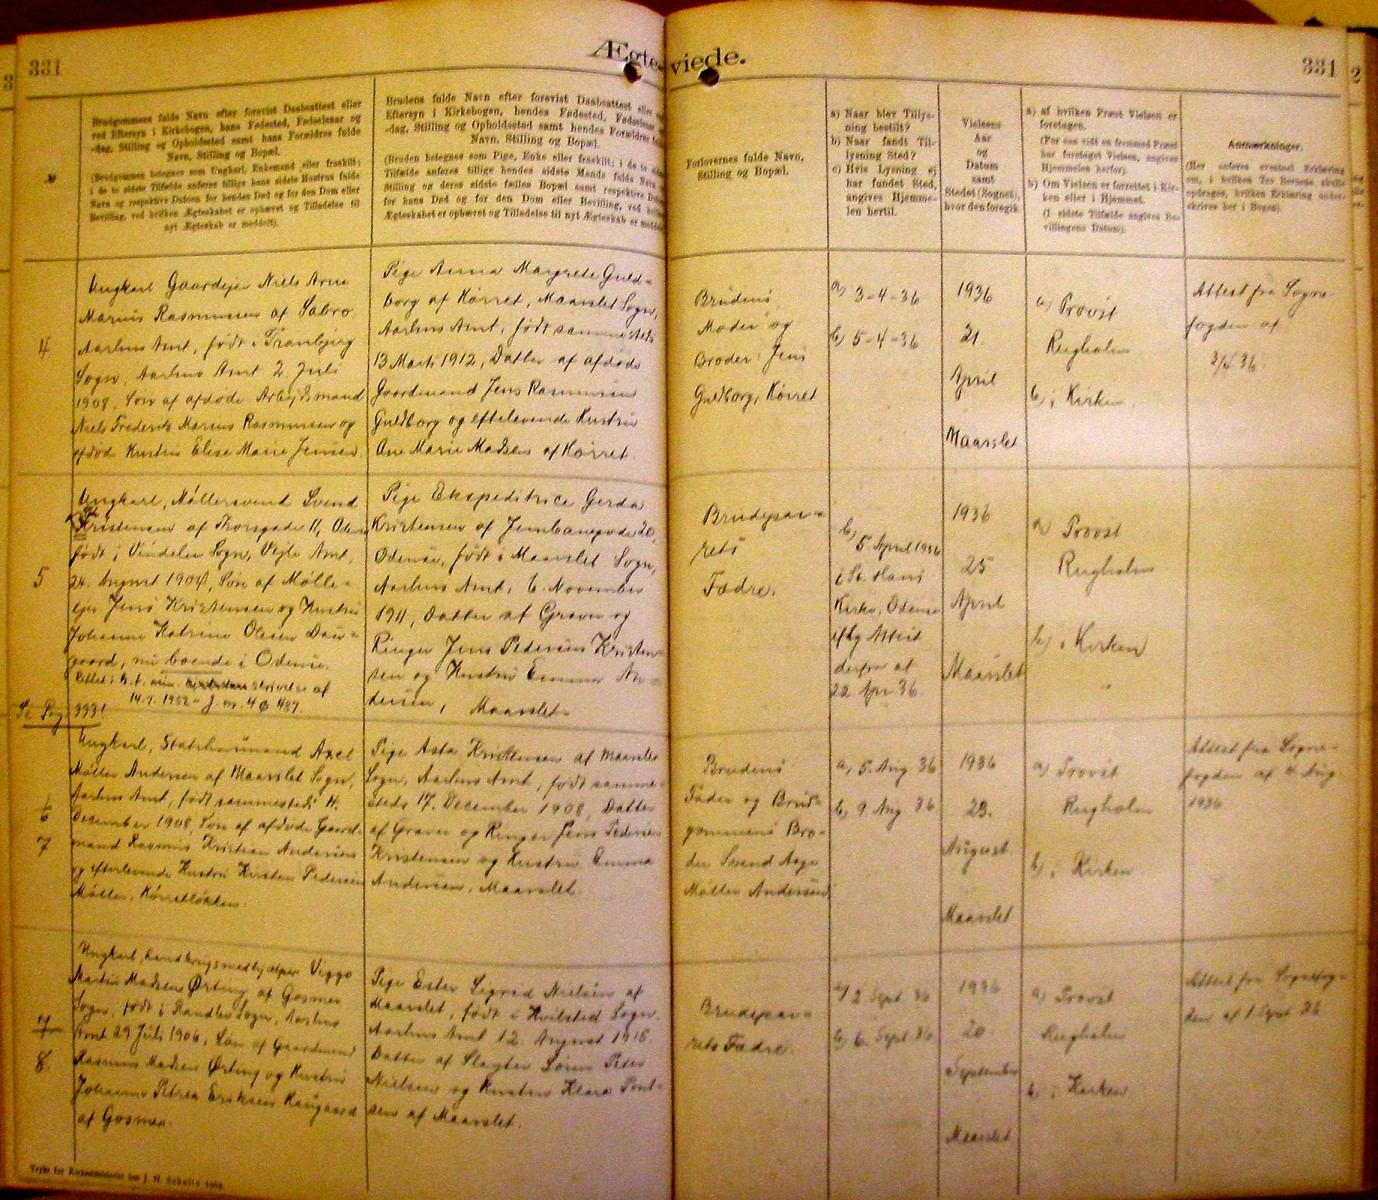 331
Ægteviede.
331
№
Brudgommens fulde Navn efter forevist Daabsattest eller
ved Eftersyn i Kirkebogen, hans Fødested, Fødselsaar og
-dag, Stilling og Opholdssted samt hans Forældres fulde
Navn, Stilling og Bopæl.
(Brudgommen betegnes som Ungkarl, Enkemand eller fraskilt;
i de to sidste Tilfælde anføres tillige hans sidste Hustrus fulde
Navn og respektive Datoen for hendes Død og for den Dom eller
Bevilling, ved hvilken Ægteskabet er ophævet og Tilladelse til
nyt Ægteskab er meddelt).
Brudens fulde Navn efter forevist Daabsattest eller
Eftersyn i Kirkebogen, hendes Fødested, Fødselsaar og
-dag, Stilling og Opholdssted samt hendes Forældres fulde
Navn, Stilling og Bopæl.
(Bruden betegnes som Pige, Enke eller fraskilt; i de to sidste
Tilfælde anføres tillige hendes sidste Mands fulde Navn,
Stilling og deres sidste fælles Bopæl samt respektive Datoen
for hans Død og for den Dom eller Bevilling, ved hvilken
Ægteskabet er ophævet og Tilladelse til nyt Ægteskab er meddelt).
Forlovernes fulde Navn,
Stilling og Bopæl.
a) Naar blev Tillys-
ning bestilt?
b) Naar fandt Til-
lysning Sted?
c) Hvis Lysning ej
har fundet Sted,
angives Hjemme-
len hertil.
Vielsens
Aar
og
Datum
samt
Stedet (Sognet),
hvor den foregik.
a) af hvilken Præst Vielsen er
foretagen.
(For saa vidt en fremmed Præst
har foretaget Vielsen, angives
Hjemmelen herfor).
b) Om Vielsen er forrettet i Kir-
ken eller i Hjemmet.
(I sidste Tilfælde angives Be-
villingens Datum).
Anmærkninger.
(Her anføres eventuel Erklæring
om, i hvilken Tro Børnene skulle
opdrages, hvilken Erklæring under-
skrives her i Bogen).
4
Ungkarl Gaardejer Niels Arne
Marius Rasmussen af Sabro
Aarhus Amt, født i Tranbjerg
Sogn, Aarhus Amt 2 Juli
1908, Søn af afdøde Arbejdsmand
Niels Frederik Marius Rasmussen og
afdøde Hustru Elise Marie Jensen.
Pige Anna Margrete Guld-
borg af Hørret, Maarslet Sogn,
Aarhus Amt, født sammesteds
13 Marts 1912, Datter af afdøde
Gaardmand Jens Rasmussen
Guldborg og efterlevende Hustru
Ane Marie Madsen af Hørret.
Brudens
Moder og
Broder Jens
Guldborg, Hørret
a) 3-4-36
b) 5-4-36
1936
21.
April
Maarslet
a) Provst
Rugholm
b) i Kirken.
Attest fra Sogne-
fogden af
3/4 36.
5
Ungkarl, Møllersvend Svend
Kristensen af Thorsgade 11, Odense
født i Vindelev Sogn, Vejle Amt,
24. August 1904, Søn af Mølle-
ejer Jens Kristensen og Hustru
Johanne Katrine Olesen Dau-
gaard, nu boende i Odense.
skrivelse af
14.7.1952 - J. nr. 4 Ø 487.
Se Pag 333!
Pige Ekspeditrice Gerda
Kristensen af Jernbanegade 20,
Odense, født i Maarslet Sogn,
Aarhus Amt, 6. November
1911, Datter af Graver og
Ringer Jens Pedersen Kristen-
sen og Hustru Emma An-
dersen, Maarslet.
Brudepar-
rets
Fædre.
b)
5. April 1936
i St. Hans
Kirke, Odense
iflg Attest
derfra af
22. Apr. 36.
1936
25
April
Maarslet
a) Provst
Rugholm
b) i Kirken
6
7
Ungkarl, Statshusmand Axel
Møller Andersen af Maarslet Sogn,
Aarhus Amt, født sammesteds 14.
December 1908, Søn af afdøde Gaard-
mand Rasmus Kristian Andersen
og efterlevende Hustru Kirsten Pedersen
Møller, Hørretløkken.
Pige Asta Kristensen af Maarslet
Sogn, Aarhus Amt, født samme-
steds 17. December 1908, Datter
af Graver og Ringer Jens Pedersen
Kristensen og Hustru Emma
Andersen, Maarslet.
Brudens
Fader og Brud-
gommens Bro-
der Svend Aage
Møller Andersen
a) 5. Aug 36
b) 9 Aug 36
1936
23.
August.
Maarslet
a) Provst
Rugholm
b) i Kirken
Attest fra Sogne-
fogden af 4 Aug
1936
7
8
Ungkarl, Landbrugsmedhjælper Viggo
Martin Madsen Ørting af Gosmer
Sogn, født i Randlev Sogn, Aarhus
Amt 29 Juli 1906, Søn af Gaardmand
Rasmus Madsen Ørting og Hustru
Johanne Petrea Eriksen Haugaard
af Gosmer.
Pige Ester Sigrid Nielsen af
Maarslet, født i Hvilsted Sogn,
Aarhus Amt 12. August 1915.
Datter af Slagter Søren Peter
Nielsen og Hustru Klara Poul-
sen af Maarslet.
Brudepar-
rets Fædre.
a) 2 Sept 36
b) 6. Sept. 36.
1936
20
September
Maarslet
a) Provst
Rugholm
b) i Kirken
Attest fra Sognefog-
den af 1 Sept 36
Trykt for Kirkeministeriet hos J. H. Schultz